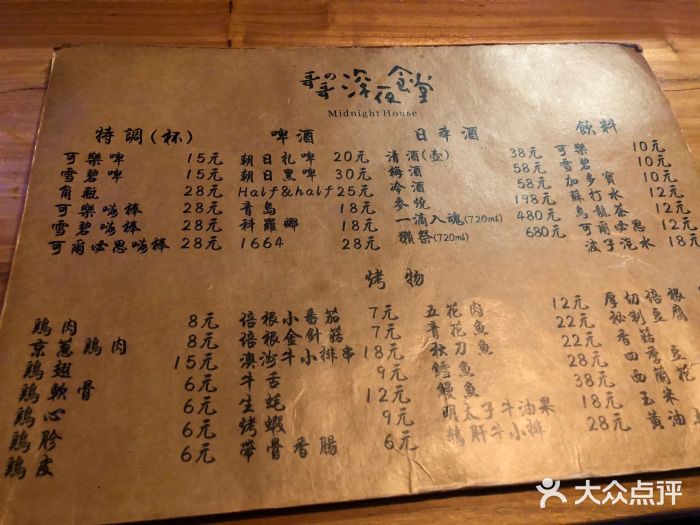 哥の哥深夜食堂
Midnight House
特調(杯)
可樂啤 15元
雪碧啤 15元
角瓶 28元
可樂嗨棒 28元
雪碧嗨棒 28元
可爾必思嗨棒 28元
啤酒
朝日札啤 20元
朝日黑啤 30元
Half&half 25元
青島 18元
科羅娜 18元
1664 28元
日本酒
清酒(壺) 38元
梅酒 58元
冷酒 58元
麥燒 198元
一滴入魂(720ml) 480元
獺祭(720ml) 680元
飲料
可樂 10元
雪碧 10元
加多寶 10元
蘇打水 12元
烏龍茶 12元
可爾必思 12元
波子汽水 18元
烤物
鶏肉 8元
京蔥鶏肉 8元
鶏翅 15元
鶏軟骨 6元
鶏心 6元
鶏胗 6元
鶏皮 6元
培根小番茄 7元
培根金針菇 7元
澳洲牛小排串 18元
牛舌 9元
生蚝 12元
烤蝦 9元
帶骨香腸 6元
五花肉 12元
青花魚 22元
秋刀魚 22元
鱈魚 28元
鰻魚 38元
明太子牛油果 18元
鵝肝牛小排 28元
厚切培根
秘制豆腐
香菇
四季豆
西蘭花
玉米
黄油
大众点评